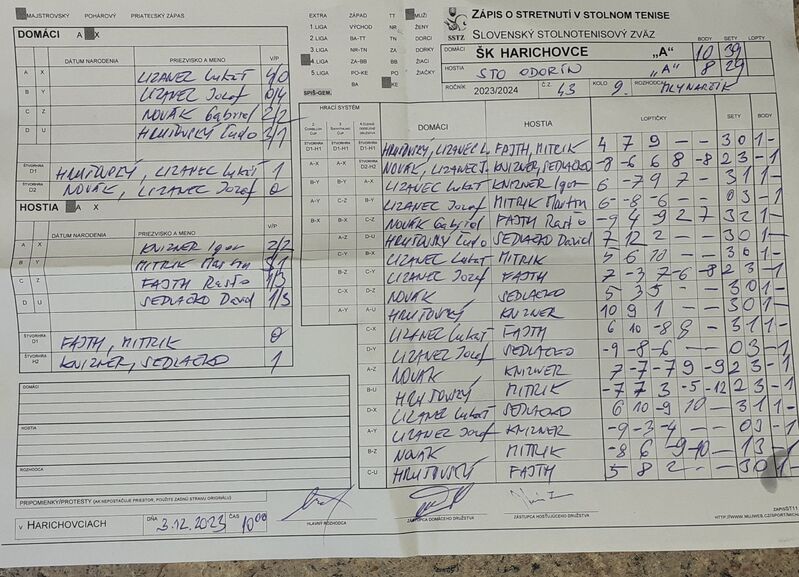 MAJSTROVSKÝ POHÁROVÝ PRIATEĽSKÝ ZÁPAS
DOMÁCI A X
DÁTUM NARODENIA PRIEZVISKO A MENO V/P
A X LIZANEC Lukáš 4/0
B Y LIZANEC Jozef 0/4
C Z NOVÁK Gabriel 2/2
D U HRUŠOVSKÝ Ľudo 3/1
ŠTVORHRA D1 HRUŠOVSKÝ, LIZANEC Lukáš 1
ŠTVORHRA D2 NOVÁK, LIZANEC Jozef 0
HOSTIA A X
DÁTUM NARODENIA PRIEZVISKO A MENO V/P
A X KNIZNER Igor 2/2
B Y MITRIK Martin 3/1
C Z FAJTH Rasťo 1/3
D U SEDLAČKO David 1/3
ŠTVORHRA D1 FAJTH, MITRIK 0
ŠTVORHRA H2 KNIZNER, SEDLAČKO 1
DOMÁCI
HOSTIA
ROZHODCA
PRIPOMIENKY/PROTESTY (AK NEPOSTAČUJE PRIESTOR, POUŽITE ZADNÚ STRANU ORIGINÁLU)
V HARICHOVCIACH DŇA 3.12.2023 ČAS 10:00
HLAVNÝ ROZHODCA
ZÁSTUPCA DOMÁCEHO DRUŽSTVA
ZÁSTUPCA HOSŤUJÚCEHO DRUŽSTVA
EXTRA ZÁPAD TT MUŽI
1.LIGA VÝCHOD NR ŽENY
2.LIGA BA-TT TN DORCI
3.LIGA NR-TN ZA DORKY
4.LIGA ZA-BB BB ŽIACI
5.LIGA PO-KE PO ŽIAČKY
SPIŠ-GEM. BA KE
SSTZ
ZÁPIS O STRETNUTÍ V STOLNOM TENISE
SLOVENSKÝ STOLNOTENISOVÝ ZVÄZ
BODY SETY LOPTY
DOMÁCI ŠK HARICHOVCE „A" 10 39
HOSTIA STO ODORÍN „A" 8 29
ROČNÍK 2023/2024 Č.Z. 43 KOLO 9. ROZHODCA MLYNARČÍK
HRACÍ SYSTÉM DOMÁCI HOSTIA LOPTIČKY SETY BODY
D1-H1 D1-H1 D1-H1 HRUŠOVSKÝ, LIZANEC L. FAJTH, MITRIK 4 7 9 - - 3 0 1 -
A-X A-X D2-H2 NOVÁK, LIZANEC J. KNIZNER, SEDLAČKO -8 -6 6 8 -8 2 3 - 1
B-Y B-Y A-X LIZANEC Lukáš KNIZNER Igor 6 -7 9 7 - 3 1 1 -
A-Y C-Z B-Y LIZANEC Jozef MITRIK Martin -6 -8 -6 - - 0 3 - 1
B-X B-X C-Z NOVÁK Gabriel FAJTH Rasťo -9 4 -9 2 7 3 2 1 -
A-Z D-U HRUŠOVSKÝ Ľudo SEDLAČKO David 7 12 2 - - 3 0 1 -
C-Y B-X LIZANEC Lukáš MITRIK 5 6 10 - - 3 0 1 -
B-Z C-Y LIZANEC Jozef FAJTH 7 -3 7 -6 -8 2 3 - 1
C-X D-Z NOVÁK SEDLAČKO 5 3 5 - - 3 0 1 -
A-Y A-U HRUŠOVSKÝ KNIZNER 10 9 1 - - 3 0 1 -
C-X LIZANEC Lukáš FAJTH 6 10 -8 8 - 3 1 1 -
D-Y LIZANEC Jozef SEDLAČKO -9 -8 -6 - - 0 3 - 1
A-Z NOVÁK KNIZNER 7 -7 -7 9 -9 2 3 - 1
B-U HRUŠOVSKÝ MITRIK -7 7 3 -5 -12 2 3 - 1
D-X LIZANEC Lukáš SEDLAČKO 6 10 -9 10 - 3 1 1 -
A-Y LIZANEC Jozef KNIZNER -9 -3 -4 - - 0 3 - 1
B-Z NOVÁK MITRIK -8 6 -9 -10 - 1 3 - 1
C-U HRUŠOVSKÝ FAJTH 5 8 2 - - 3 0 1 -